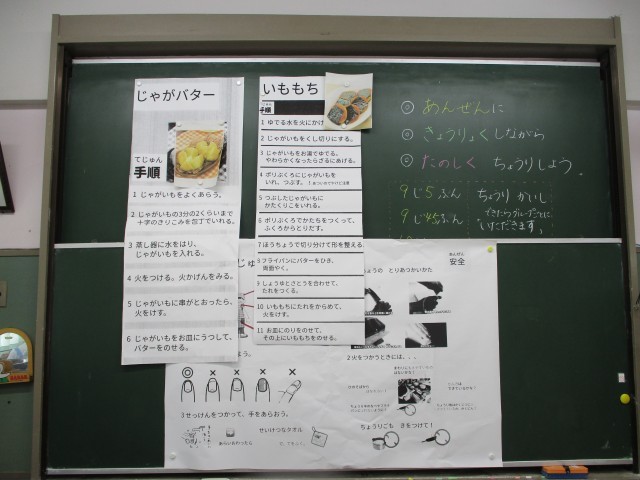 じゃがバター
てじゅん
手順
1 じゃがいもをよくあらう。
2 じゃがいもの3分の2くらいまで
十字のきりこみを包丁でいれる。
3 蒸し器に水をはり、
じゃがいもを入れる。
4 火をつける。火かげんをみる。
5 じゃがいもに串がとおったら、
火をけす。
6 じゃがいもをお皿にうつして、
バターをのせる。
いももち
手順
1 ゆでる水を火にかけ
2 じゃがいもをくし切りにする。
3 じゃがいもをお湯でゆでる。
やわらかくなったらざるにあげる。
4 ポリぶくろにじゃがいもを
いれ、つぶす。
5 つぶしたじゃがいもに
かたくりこをいれる。
6 ポリぶくろでかたちをつくって、
ふくろからとりだす。
7 ほうちょうで切り分けて形を整える。
8 フライパンにバターをひき、
両面やく。
9 しょうゆとさとうを合わせて、
たれをつくる。
10 いももちにたれをからめて、
火をけす。
11 お皿にのりをのせて、
その上にいももちをのせる。
◎ あんぜんに
◎ きょうりょくしながら
◎ たのしく ちょうりしよう。
9じ5ふん ちょうり かいし
9じ45ふん できたらグループごとに
いただきます。
あんぜん
安全
しょうの とりあつかいかた
2 火をつかうときには、、、
ちょうりごも きをつけて!
◎ × × × ×
3 せっけんをつかって、手をあらおう。
せいけつなタオル